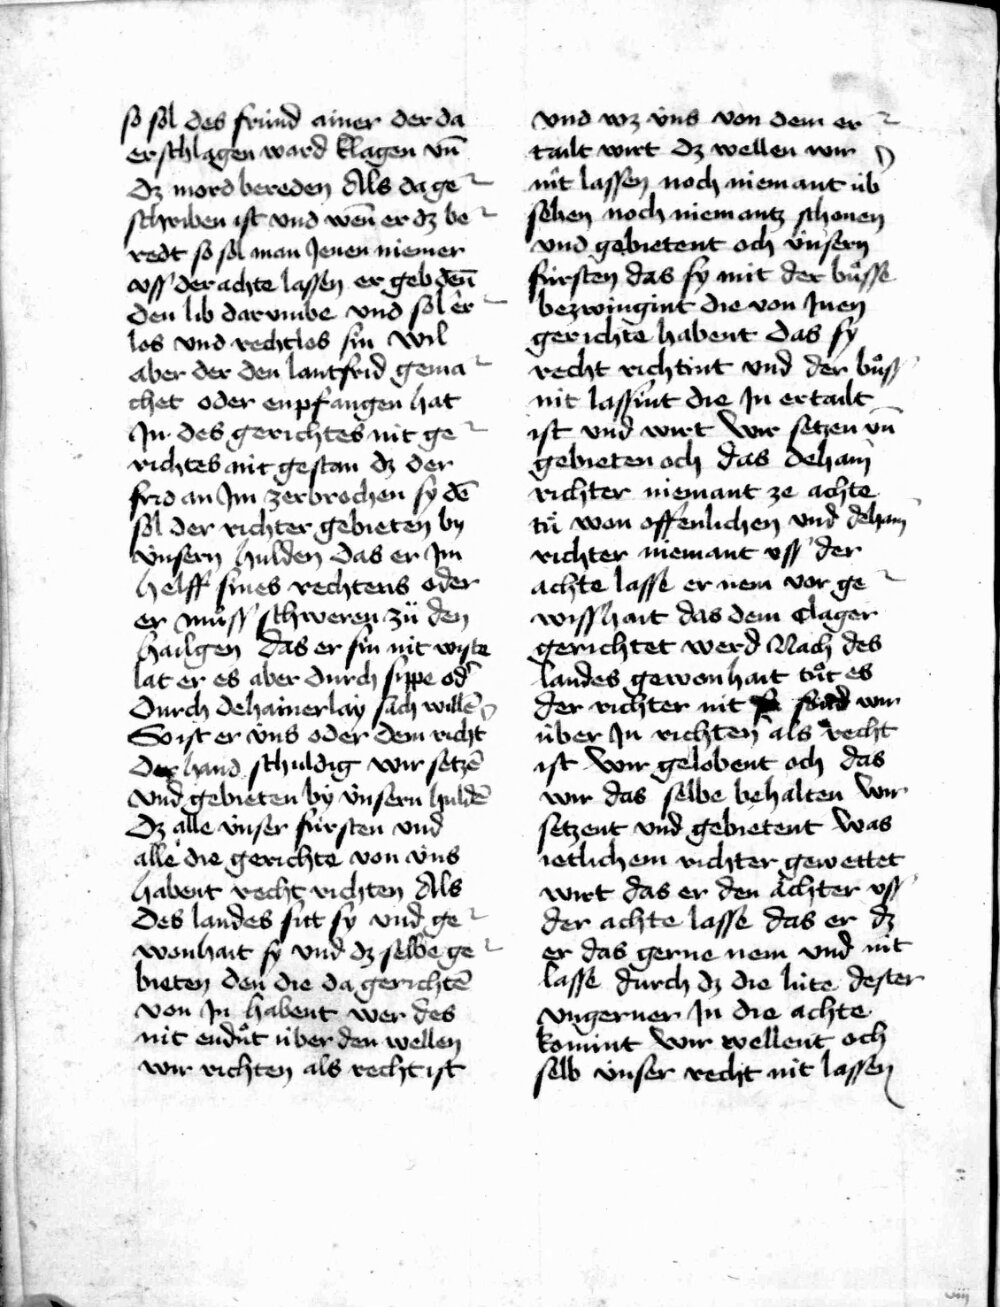 so sol des fründ ainer der da
erschlagen ward klagen vn̄
dz mord bereden Als da ge
schriben ist vnd wen̄ er dz be
redt so sol man Jenen niemer
vss der achte lassen er geb den̄
den lib darumbe vnd sol er
los vnd rechtlos sin Wil
aber der den lantfrid gema
chet oder enpfangen hat
Jn des gerichtes nit ge
richtes nit gestan dz der
frid an Jm zerbrochen sy dē
sol der richter gebieten by
v̈nsern hulden das er Jm
helff sines rechtens oder
er mu̍ss schweren zü den
hailgen das er sin nit wiste
lat er es aber durch sippe od̛
durch dehainerlay sach willē
So ist er v̈ns oder dem richt
der hand schuldig wir setzē
vnd gebieten by v̈nsern huldē
Dz alle v̈nser fürsten vnd
alle die gerichte von v̈ns
habent recht richten Als
des landes sitt sy vnd ge
wonhait sy vnd dz selbe ge
bieten den die da gerichtē
von Jn habent wer des
nit endůt über den wellen
wir richten als recht ist
vnd wz v̈ns von dem er
tailt wirt dz wellen wir
nit lassen noch niemant üb̛
sehen noch niemantz schonen
vnd gebietent och v̈nsern
fürsten das sy mit der bůsse
bezwingint die von Jnen
gerichte habent das sy
recht richtint vnd der bůss
nit lassint die Jn ertailt
ist vnd wirt Wir setzen vn̄
gebieten och das dehain
richter niemant ze achte
tů won offenlichen vnd dehain
richter niemant vss der
achte lasse er nem vor ge
wisshait das dem Clager
gerichtet werd Nach des
landes gewonhait tůt es
der richter nit so wir
über Jn richten als recht
ist Wir gelobent och das
wir das selbe behalten Wir
setzent vnd gebietent Was
ietlichem richter gewettet
wirt das er den ächter vss
der achte lasse das er dz
er das gerne nem vnd nit
lasse durch dz die lüte dester
vngerner Jn die achte
komint Wir wellent och
selb v̈nser recht nit lassen
viij